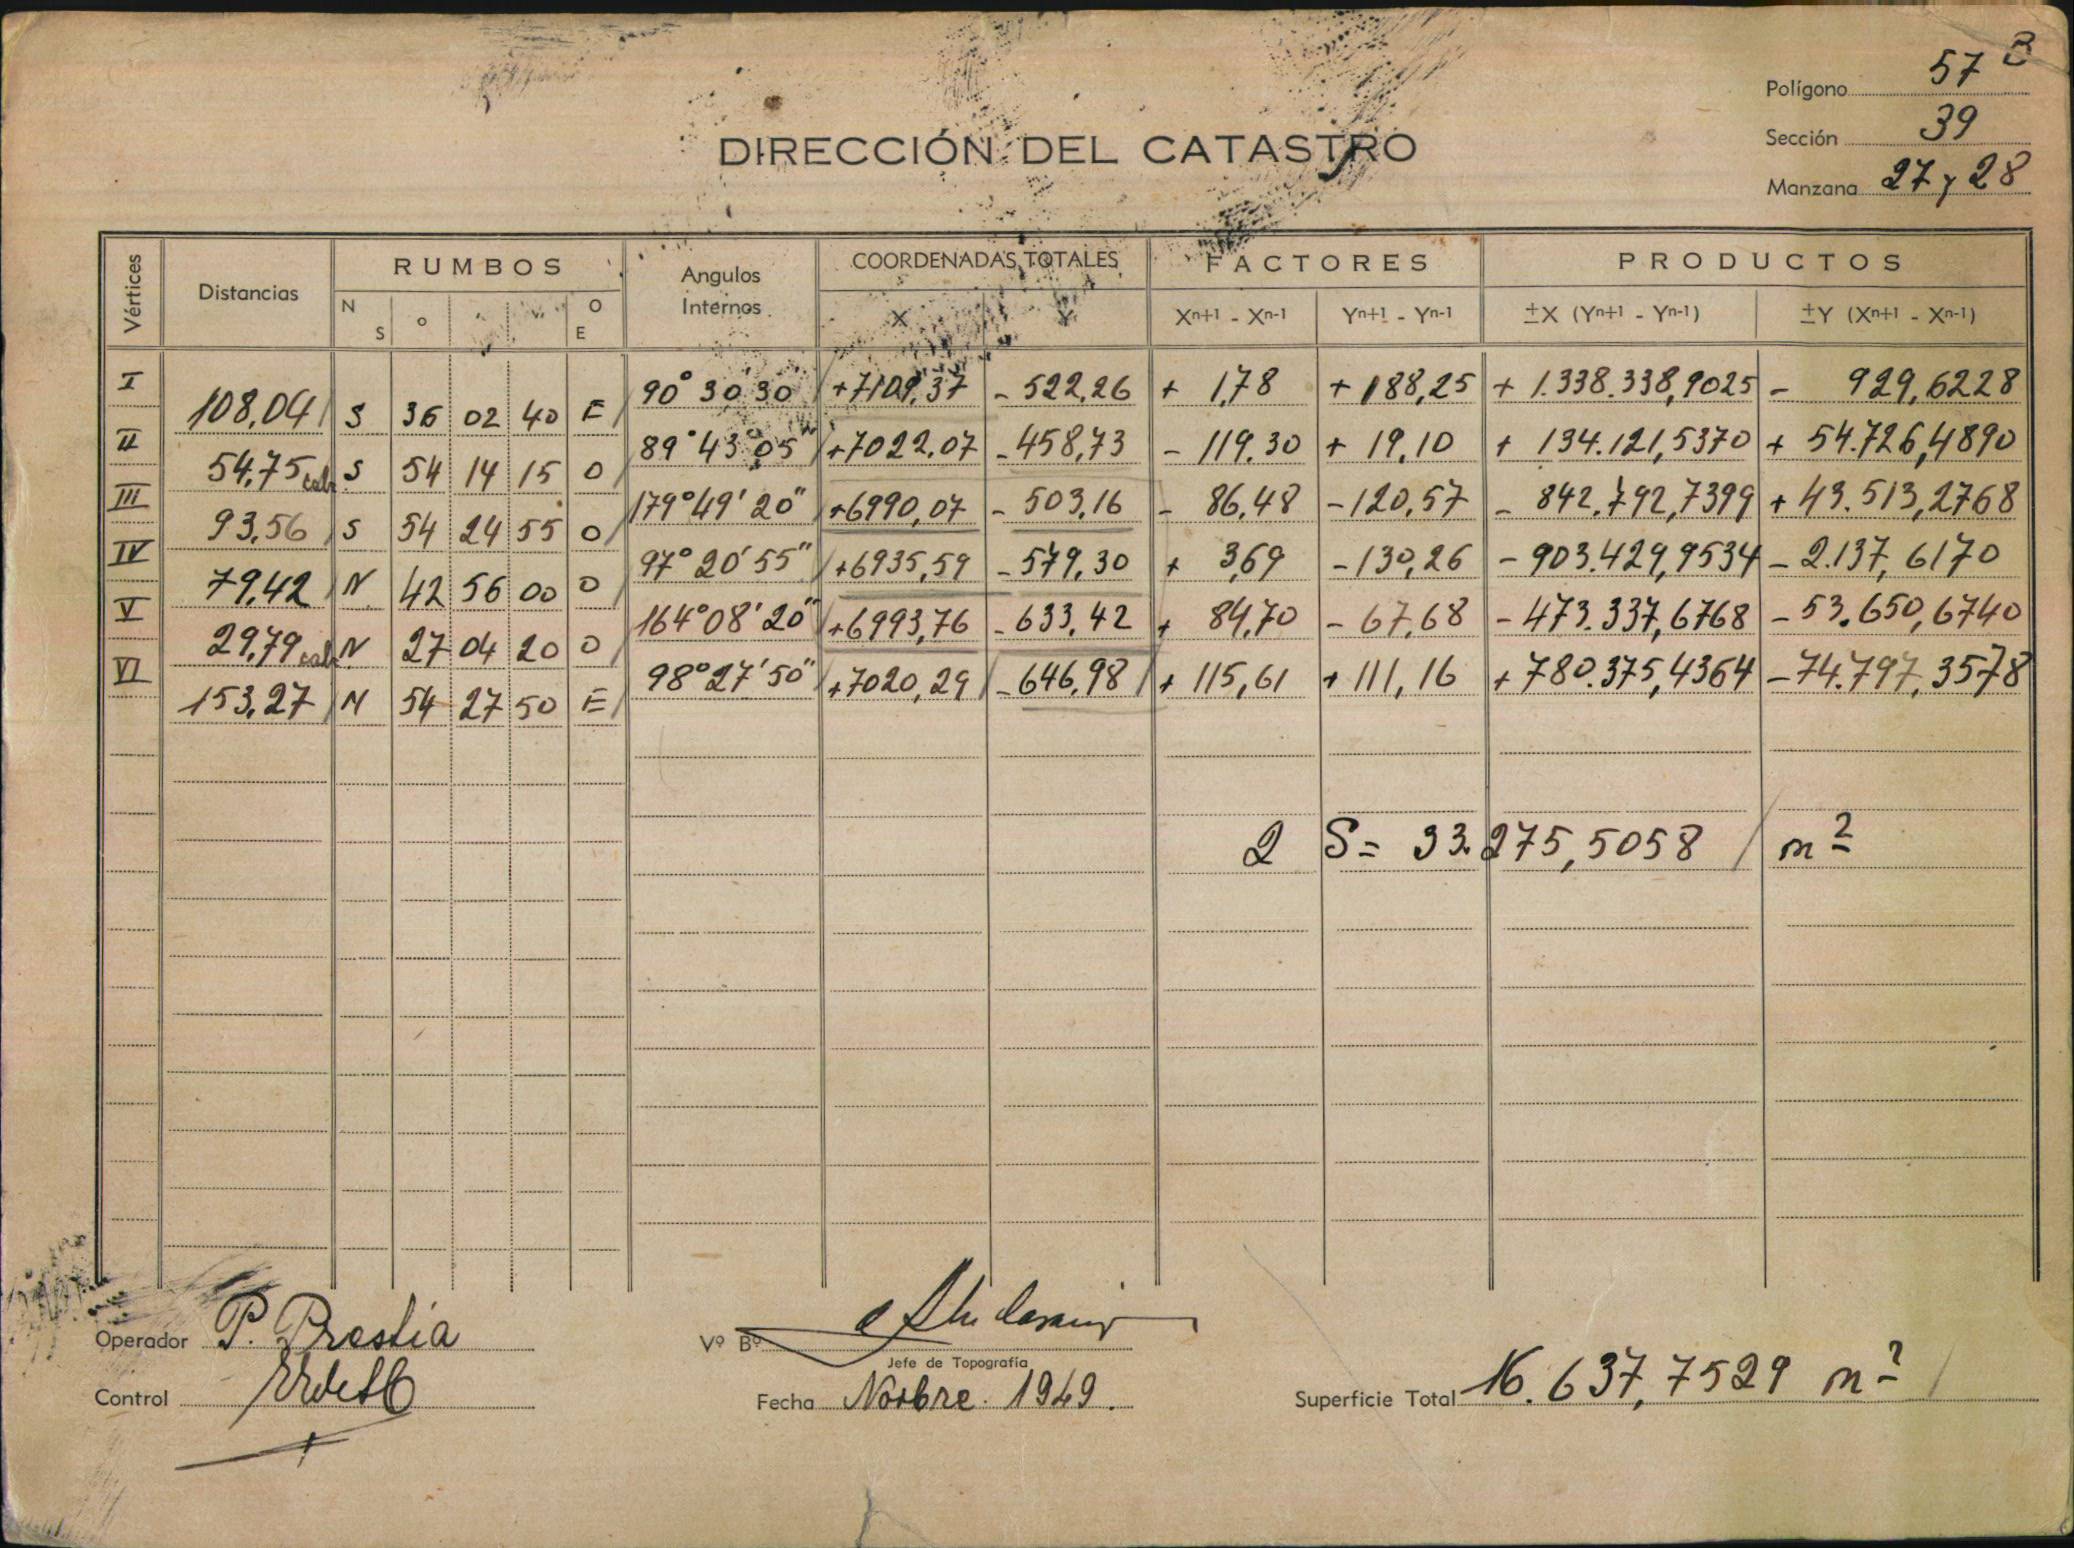 Polígono 57 B
Sección 39
Manzana 27 y 28
DIRECCIÓN DEL CATASTRO
Vértices Distancias RUMBOS Angulos Internos COORDENADAS TOTALES FACTORES PRODUCTOS
N S ° ' " O E X Y Xn+1 - Xn-1 Yn+1 - Yn-1 ±X (Yn+1 - Yn-1) ±Y (Xn+1 - Xn-1)
I 90° 30' 30" +7109,37 - 522,26 + 1,78 + 188,25 + 1.338.338,9025 - 929,6228
108,04 S 36 02 40 E
II 89° 43' 05" +7022,07 - 458,73 - 119,30 + 19,10 + 134.121,5370 + 54.726,4890
54,75 calc. S 54 14 15 O
III 179° 49' 20" +6990,07 - 503,16 - 86,48 - 120,57 - 842.792,7399 + 43.513,2768
93,56 S 54 24 55 O
IV 97° 20' 55" +6935,59 - 579,30 + 3,69 - 130,26 - 903.429,9534 - 2.137,6170
79,42 N 42 56 00 O
V 164° 08' 20" +6993,76 - 633,42 + 84,70 - 67,68 - 473.337,6768 - 53.650,6740
29,79 calc. N 27 04 20 O
VI 98° 27' 50" +7020,29 - 646,98 + 115,61 + 111,16 + 780.375,4364 - 74.797,3578
153,27 N 54 27 50 E
2 S = 33.275,5058 m²
Operador P. Prestia
Vº Bº
Jefe de Topografía
Control
Fecha Novbre. 1949.
Superficie Total 16.637,7529 m²